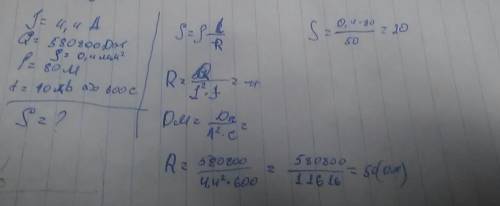 J = 4,4 A
Q = 580800 Дж
S = 0,4 мм²
l = 80 м
t = 10 мв 600 с
S = ?
S = ρ l/R
R = Q/I²·t =
Ом = Дж/A²·c =
R = 580800/4,4²·600 = 580800/11616 = 50(Ом)
S = 0,4·80/50 = 20